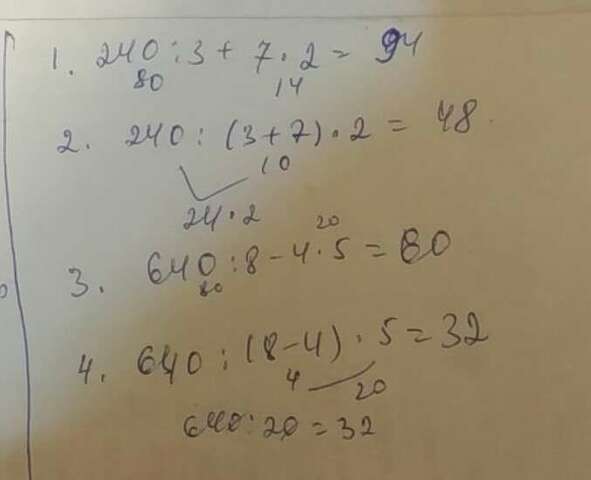 1. 240:3+7·2= 94
80 14
2. 240:(3+7)·2=48.
10
24·2
20
3. 640:8-4·5=60
80
4. 640:(8-4)·5=32
4 20
640:20=32